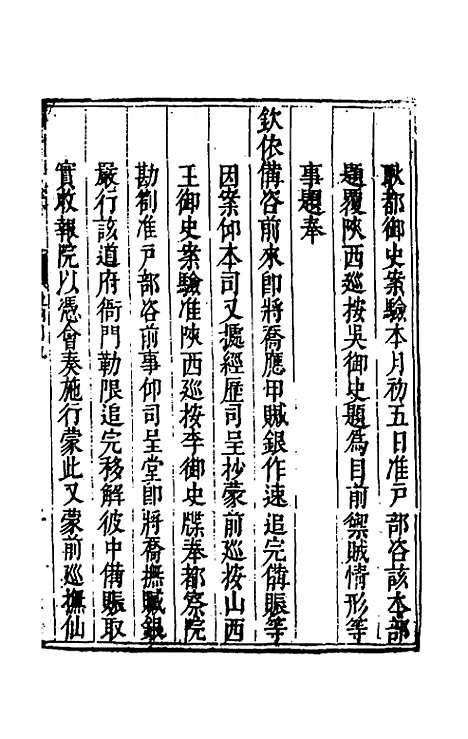 耿都御史案驗本月初五日准戶部咨該本部
題覆陝西巡按吳御史題為目前禦賊情形等
事題奉
欽依備咨前來即將喬應甲贓銀作速追完備賑等
因案仰本司又據經歷司呈抄蒙前巡按山西
王御史案驗准陝西巡按李御史牒奉都察院
勘劄准戶部咨前事仰司呈堂即將喬撫贓銀
嚴行該道府衙門勒限追完移解彼中備賑取
實收報院以憑會奏施行蒙此又蒙前巡撫仙